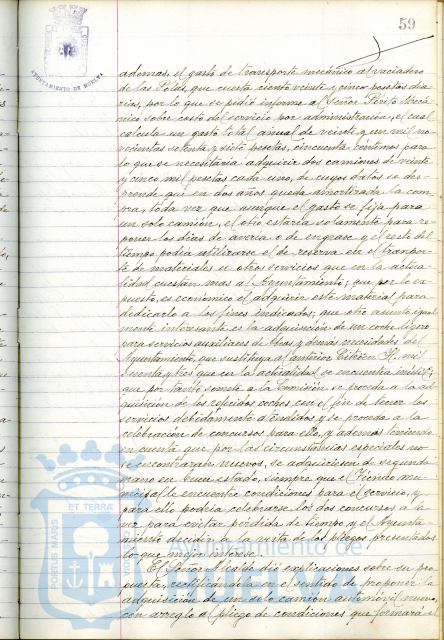 59
AYUNTAMIENTO DE HUELVA
además, el gasto de transporte mecánico al vaciadero
de las Polas, que cuesta ciento veinte y cinco pesetas dia-
rias, por lo que se pidió informe al Señor Perito Mecá-
nico sobre costo del servicio por administración, el cual
calcula un gasto total anual de veinte y un mil no-
vecientas setenta y siete pesetas, cincuenta céntimos para
lo que se necesitaria adquirir dos camiones de veinte
y cinco mil pesetas cada uno, de cuyos datos se des-
prende que en dos años queda amortizada la com-
pra, toda vez que aunque el gasto se fija para
un solo camión, el otro estaria solamente para re-
poner los dias de averia o de engrase y el resto del
tiempo podia utilizarse el de reserva en el transpor-
te de materiales u otros servicios que en la actua-
lidad cuestan mas al Ayuntamiento; que por lo ex-
puesto, es económico el adquirir este material para
dedicarlo a los fines indicados; que otro asunto igual-
mente interesante es la adquisición de un coche ligero
para servicios auxiliares de Obras y demás necesidades del
Ayuntamiento, que sustituya al anterior Citröen H. mil
y tres que en la actualidad se encuentra inútil;
que por tanto somete a la Comisión se proceda a la ad-
quisición de los referidos coches con el fin de tener los
servicios debidamente atendidos y se proceda a la
celebración de concursos para ello, y además teniendo
en cuenta que por las circunstancias especiales no
se encontraran nuevos, se adquiriesen de segunda
mano en buen estado, siempre que el Técnico mu-
nicipal le encuentre condiciones para el servicio, y
para ello podria celebrarse los dos concursos a la
vez para evitar perdida de tiempo y el Ayunta-
miento decidir a la vista de los pliegos presentados
lo que mejor interese.
El Señor Alcalde dió explicaciones sobre su pro-
puesta, rectificándola en el sentido de proponer la
adquisición de un solo camión automóvil nuevo,
con arreglo a pliego de condiciones que formará el
PORTUS MARIS
ET TERRÆ